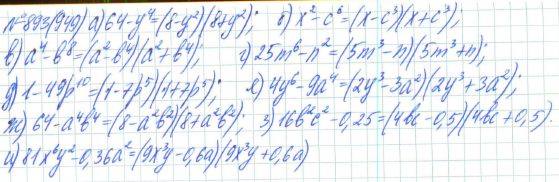 №893(949) а) 64-y⁴=(8-y²)(8+y²); б) x²-c⁶=(x-c³)(x+c³);
в) a⁴-b⁸=(a²-b⁴)(a²+b⁴); г) 25m⁶-n²=(5m³-n)(5m³+n);
д) 1-49p¹⁰=(1-7p⁵)(1+7p⁵); е) 4y⁶-9a⁴=(2y³-3a²)(2y³+3a²);
ж) 64-a⁴b⁴=(8-a²b²)(8+a²b²); з) 16b²c²-0,25=(4bc-0,5)(4bc+0,5).
и) 81x⁶y²-0,36a²=(9x³y-0,6a)(9x³y+0,6a)